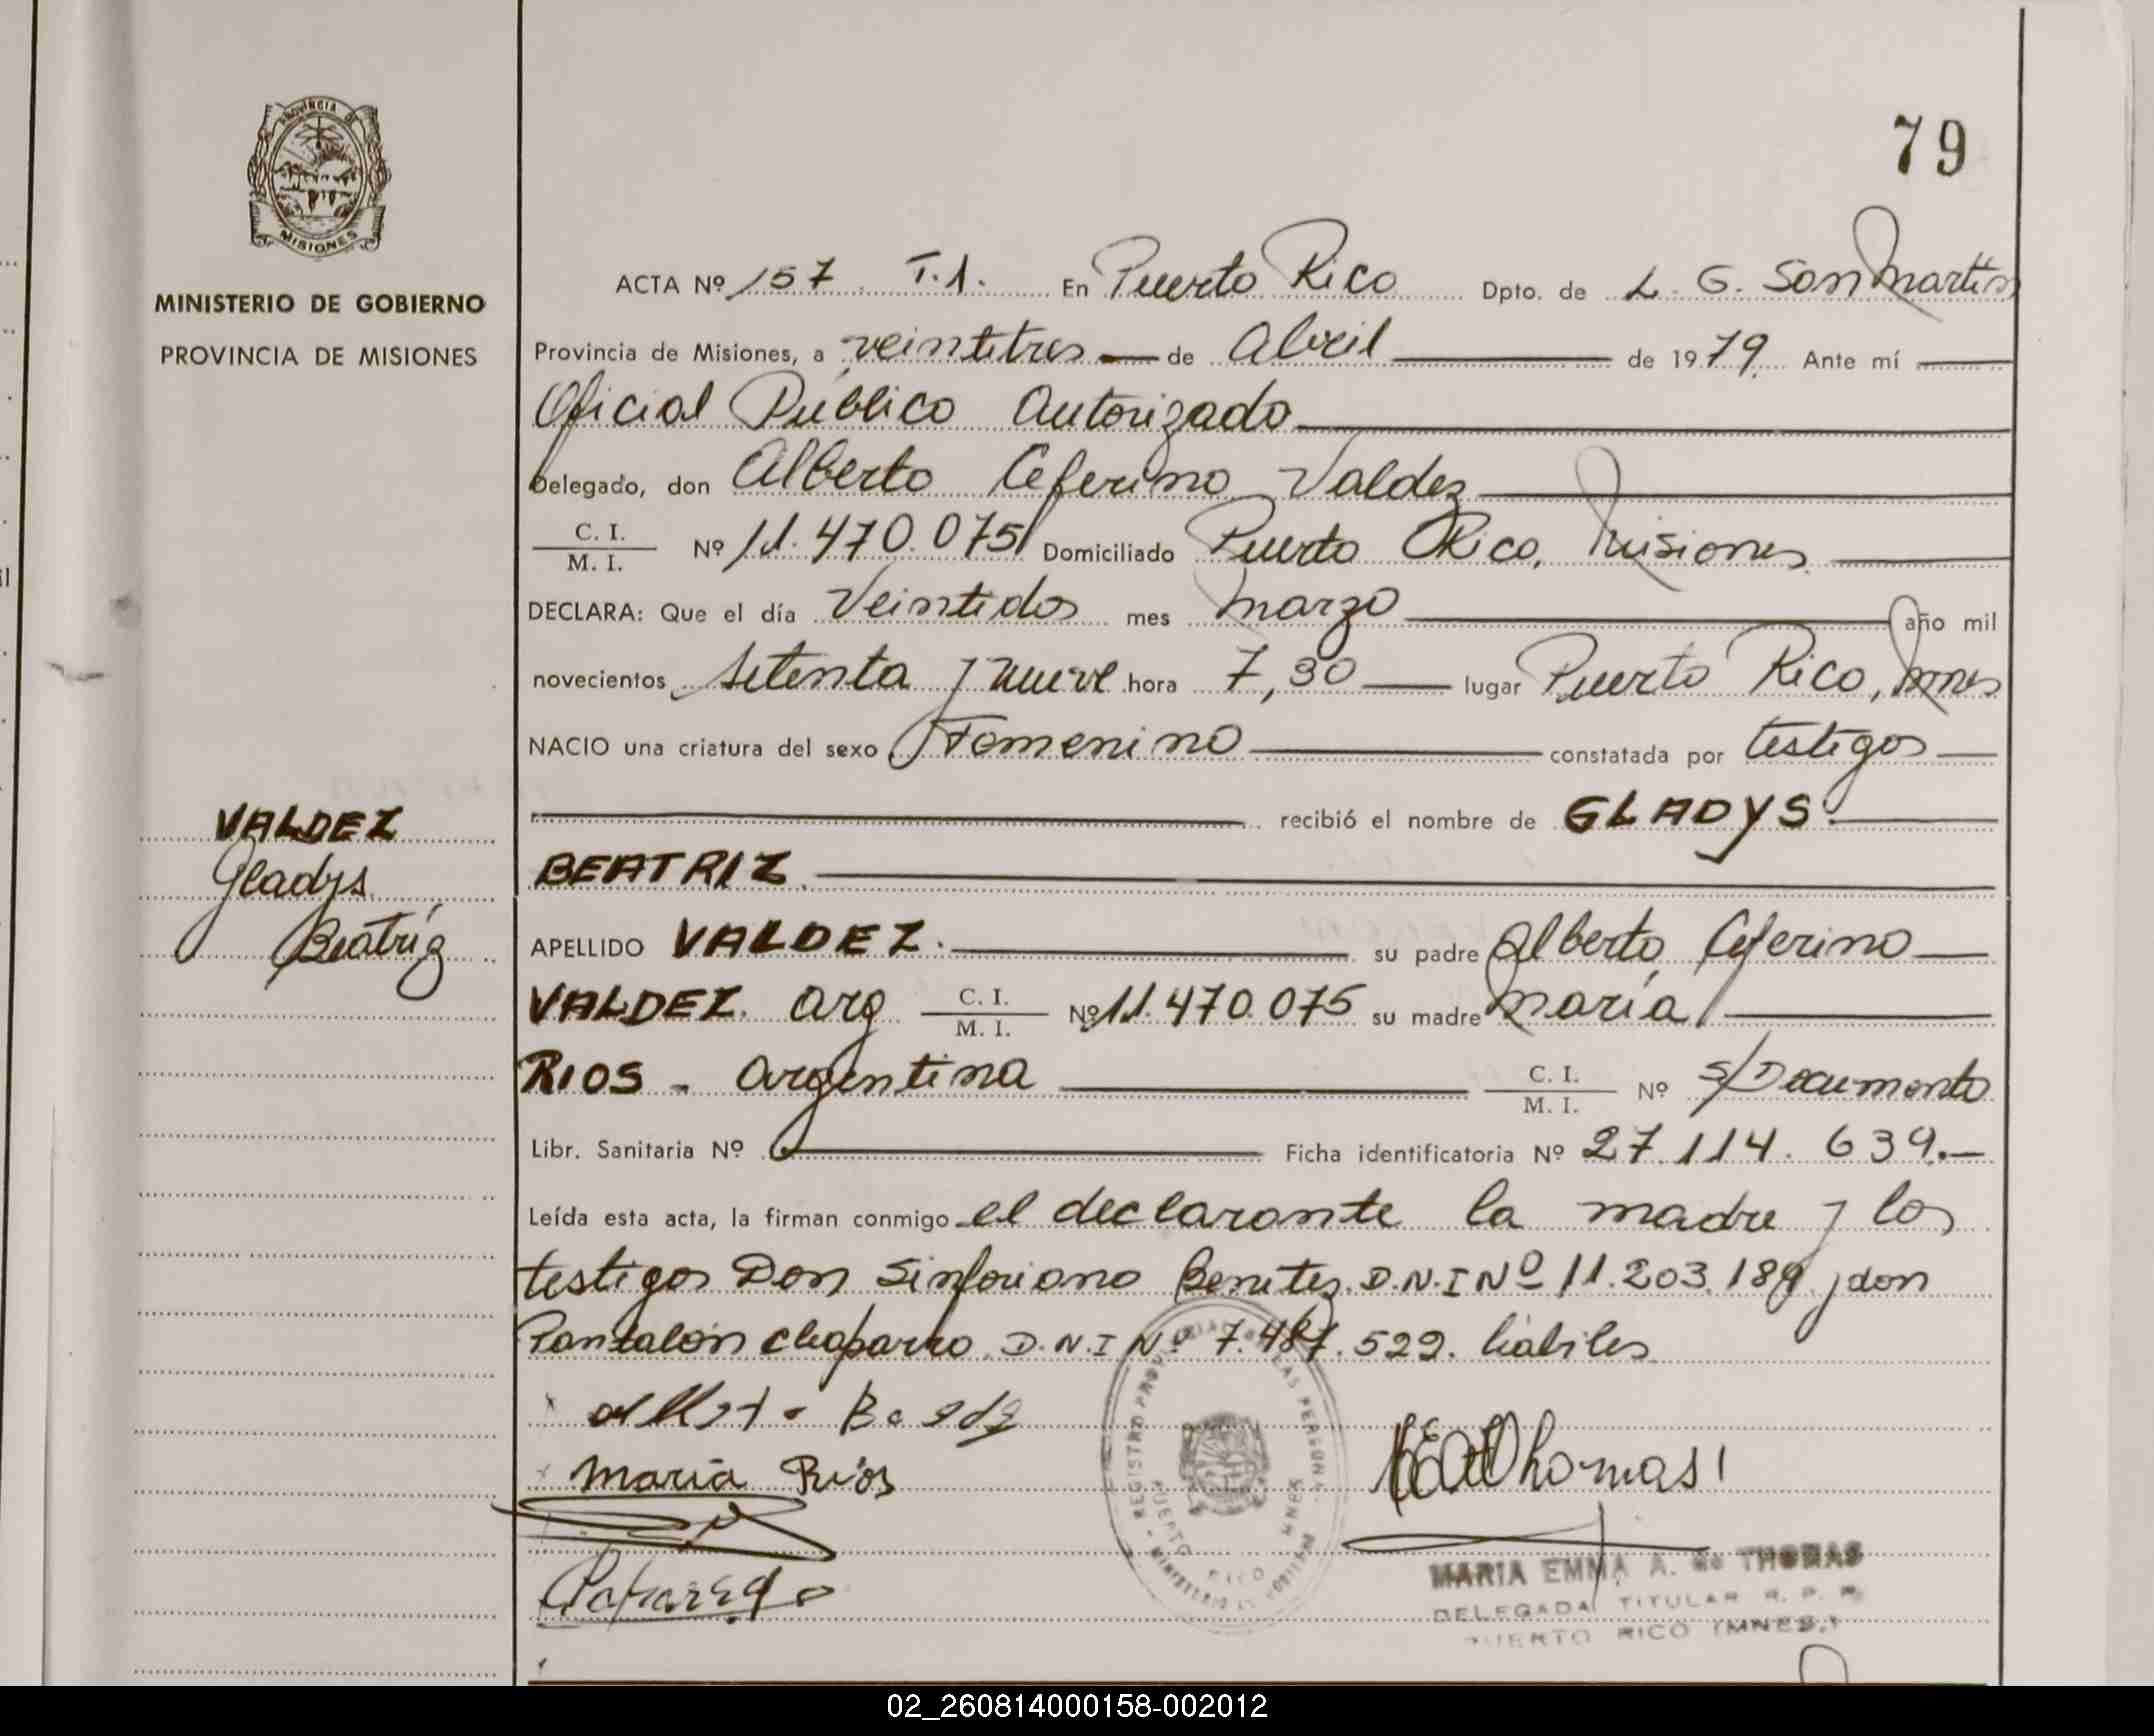 79
PROVINCIA DE
MISIONES
MINISTERIO DE GOBIERNO
PROVINCIA DE MISIONES
ACTA Nº 157 T.1. En Puerto Rico Dpto. de L. G. San Martín
Provincia de Misiones, a veintitres de Abril de 1979. Ante mí
Oficial Público Autorizado
Delegado, don Alberto Ceferino Valdez
C. I. / M. I. Nº 11.470.075 Domiciliado Puerto Rico, Misiones
DECLARA: Que el día Veintidos mes marzo año mil
novecientos setenta y nueve hora 7,30 lugar Puerto Rico, Mnes
NACIO una criatura del sexo Femenino constatada por testigos
recibió el nombre de GLADYS
BEATRIZ
VALDEZ
Gladys
Beatríz
APELLIDO VALDEZ. su padre Alberto Ceferino
VALDEZ. Arg C. I. / M. I. Nº 11.470.075 su madre María
RIOS - Argentina C. I. / M. I. Nº s/Documento
Libr. Sanitaria Nº Ficha identificatoria Nº 27.114.639.-
Leída esta acta, la firman conmigo el declarante la madre y los
testigos Don Sinforiano Benitez D.N.I Nº 11.203.189 y don
Pantalón Chaparro D.N.I Nº 7.487.529. hábiles
María Ríos
Thomas
REGISTRO PROVINCIAL DE LAS PERSONAS
PUERTO RICO MNES
MARIA EMMA A. de THOMAS
DELEGADA TITULAR R. P. P.
PUERTO RICO (MNES.)
02_260814000158-002012